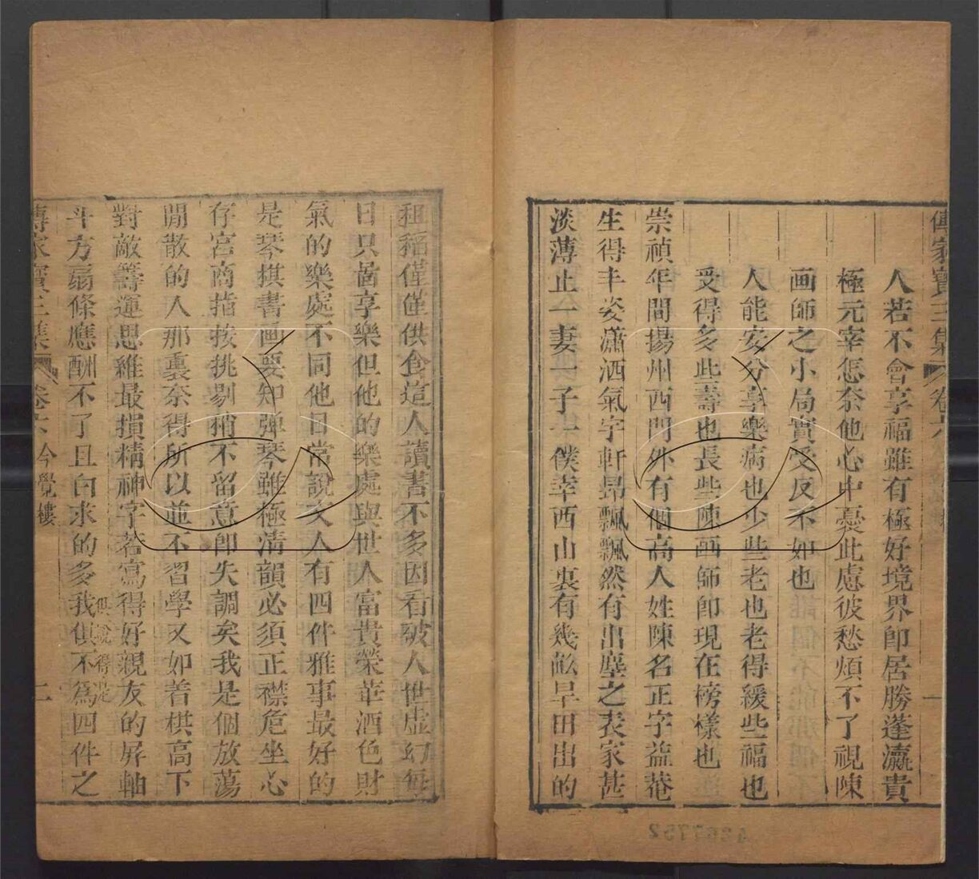 傳家寶三集 卷六
人若不會享福雖有極好境界即居勝蓬瀛貴
極元宰怎奈他心中憂此慮彼愁煩不了視陳
画師之小局實受反不如也
人能安分享樂病也少些老也老得緩些福也
受得多些壽也長些陳画師即現在榜樣也
崇禎年間揚州西門外有個高人姓陳名正字益菴
生得丰姿瀟洒氣宇軒昂飄飄然有出塵之表家甚
淡薄止一妻一子一僕幸西山裏有幾畝旱田出的
租稲僅僅供食這人讀書不多因看破人世虛幻每
日只啚享樂但他的樂處與世人富貴榮華酒色財
氣的樂處不同他日常說文人有四件雅事最好的
是琴棋書画要知彈琴雖極清韻必須正襟危坐心
存宮商指按挑剔稍不留意即失調矣我是個放蕩
閒散的人那裏奈得所以並不習學又如着棋高下
對敵籌運思維最損精神字若寫得好親友的屏軸
斗方扇條應酬不了且白求的多我俱不為四件之
俱說得是
傳家寶三集 卷六 今覺樓 二
4267752